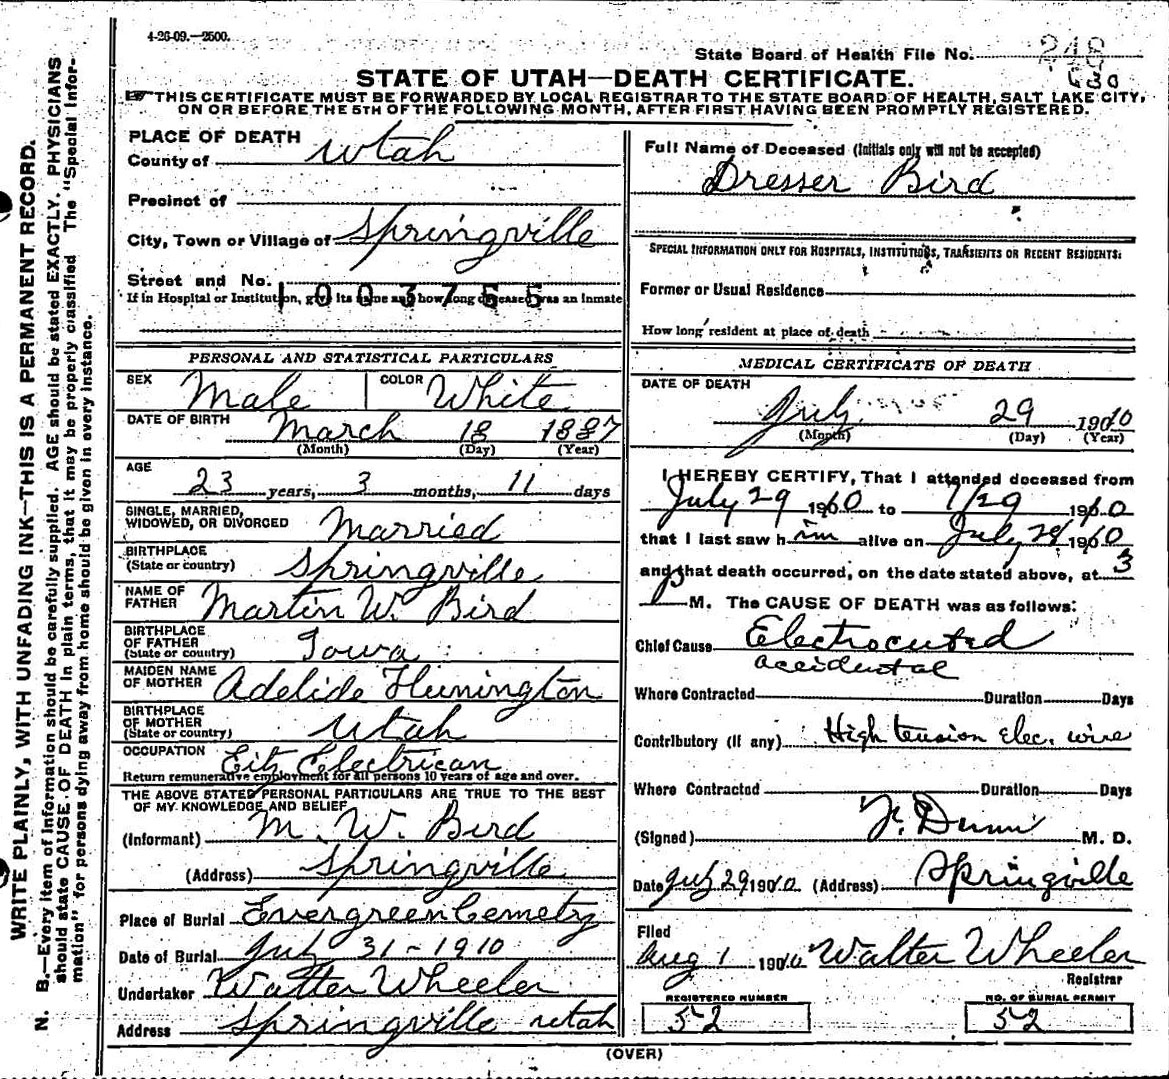 4-26-09.—2500.
State Board of Health File No.
STATE OF UTAH—DEATH CERTIFICATE.
☞THIS CERTIFICATE MUST BE FORWARDED BY LOCAL REGISTRAR TO THE STATE BOARD OF HEALTH, SALT LAKE CITY,
ON OR BEFORE THE 5TH OF THE FOLLOWING MONTH, AFTER FIRST HAVING BEEN PROMPTLY REGISTERED.
WRITE PLAINLY, WITH UNFADING INK—THIS IS A PERMANENT RECORD.
N. B.—Every item of information should be carefully supplied. AGE should be stated EXACTLY. PHYSICIANS
should state CAUSE OF DEATH in plain terms, that it may be properly classified The "Special Infor-
mation" for persons dying away from home should be given in every instance.
PLACE OF DEATH
County of Utah
Precinct of
City, Town or Village of Springville
Street and No.
1003755
If in Hospital or Institution, give its name and how long deceased was an inmate
PERSONAL AND STATISTICAL PARTICULARS
SEX Male COLOR White
DATE OF BIRTH March 18 1887
(Month) (Day) (Year)
AGE
23 years, 3 months, 11 days
SINGLE, MARRIED,
WIDOWED, OR DIVORCED Married
BIRTHPLACE
(State or country) Springville
NAME OF
FATHER Martin W. Bird
BIRTHPLACE
OF FATHER
(State or country) Iowa
MAIDEN NAME
OF MOTHER Adelide Hunington
BIRTHPLACE
OF MOTHER
(State or country) Utah
OCCUPATION City Electrican
Return remunerative employment for all persons 10 years of age and over.
THE ABOVE STATED PERSONAL PARTICULARS ARE TRUE TO THE BEST
OF MY KNOWLEDGE AND BELIEF
(Informant) M. W. Bird
(Address) Springville
Place of Burial Evergreen Cemetry
Date of Burial July 31-1910
Undertaker Walter Wheeler
Address Springville Utah
Full Name of Deceased (Initials only will not be accepted)
Dresser Bird
SPECIAL INFORMATION ONLY FOR HOSPITALS, INSTITUTIONS, TRANSIENTS OR RECENT RESIDENTS:
Former or Usual Residence
How long resident at place of death
MEDICAL CERTIFICATE OF DEATH
DATE OF DEATH
July 29 1910
(Month) (Day) (Year)
I HEREBY CERTIFY, That I attended deceased from
July 29 1910 to 7/29 1910
that I last saw him alive on July 29 1910
and that death occurred, on the date stated above, at 3
P M. The CAUSE OF DEATH was as follows:
Chief Cause Electrocuted
accidental
Where Contracted Duration Days
Contributory (if any) High tension elec. wire
Where Contracted Duration Days
(Signed) F. Dunn M. D.
Date July 29 1910 (Address) Springville
Filed
Aug 1 1910 Walter Wheeler
Registrar
REGISTERED NUMBER
52
NO. OF BURIAL PERMIT
52
(OVER)